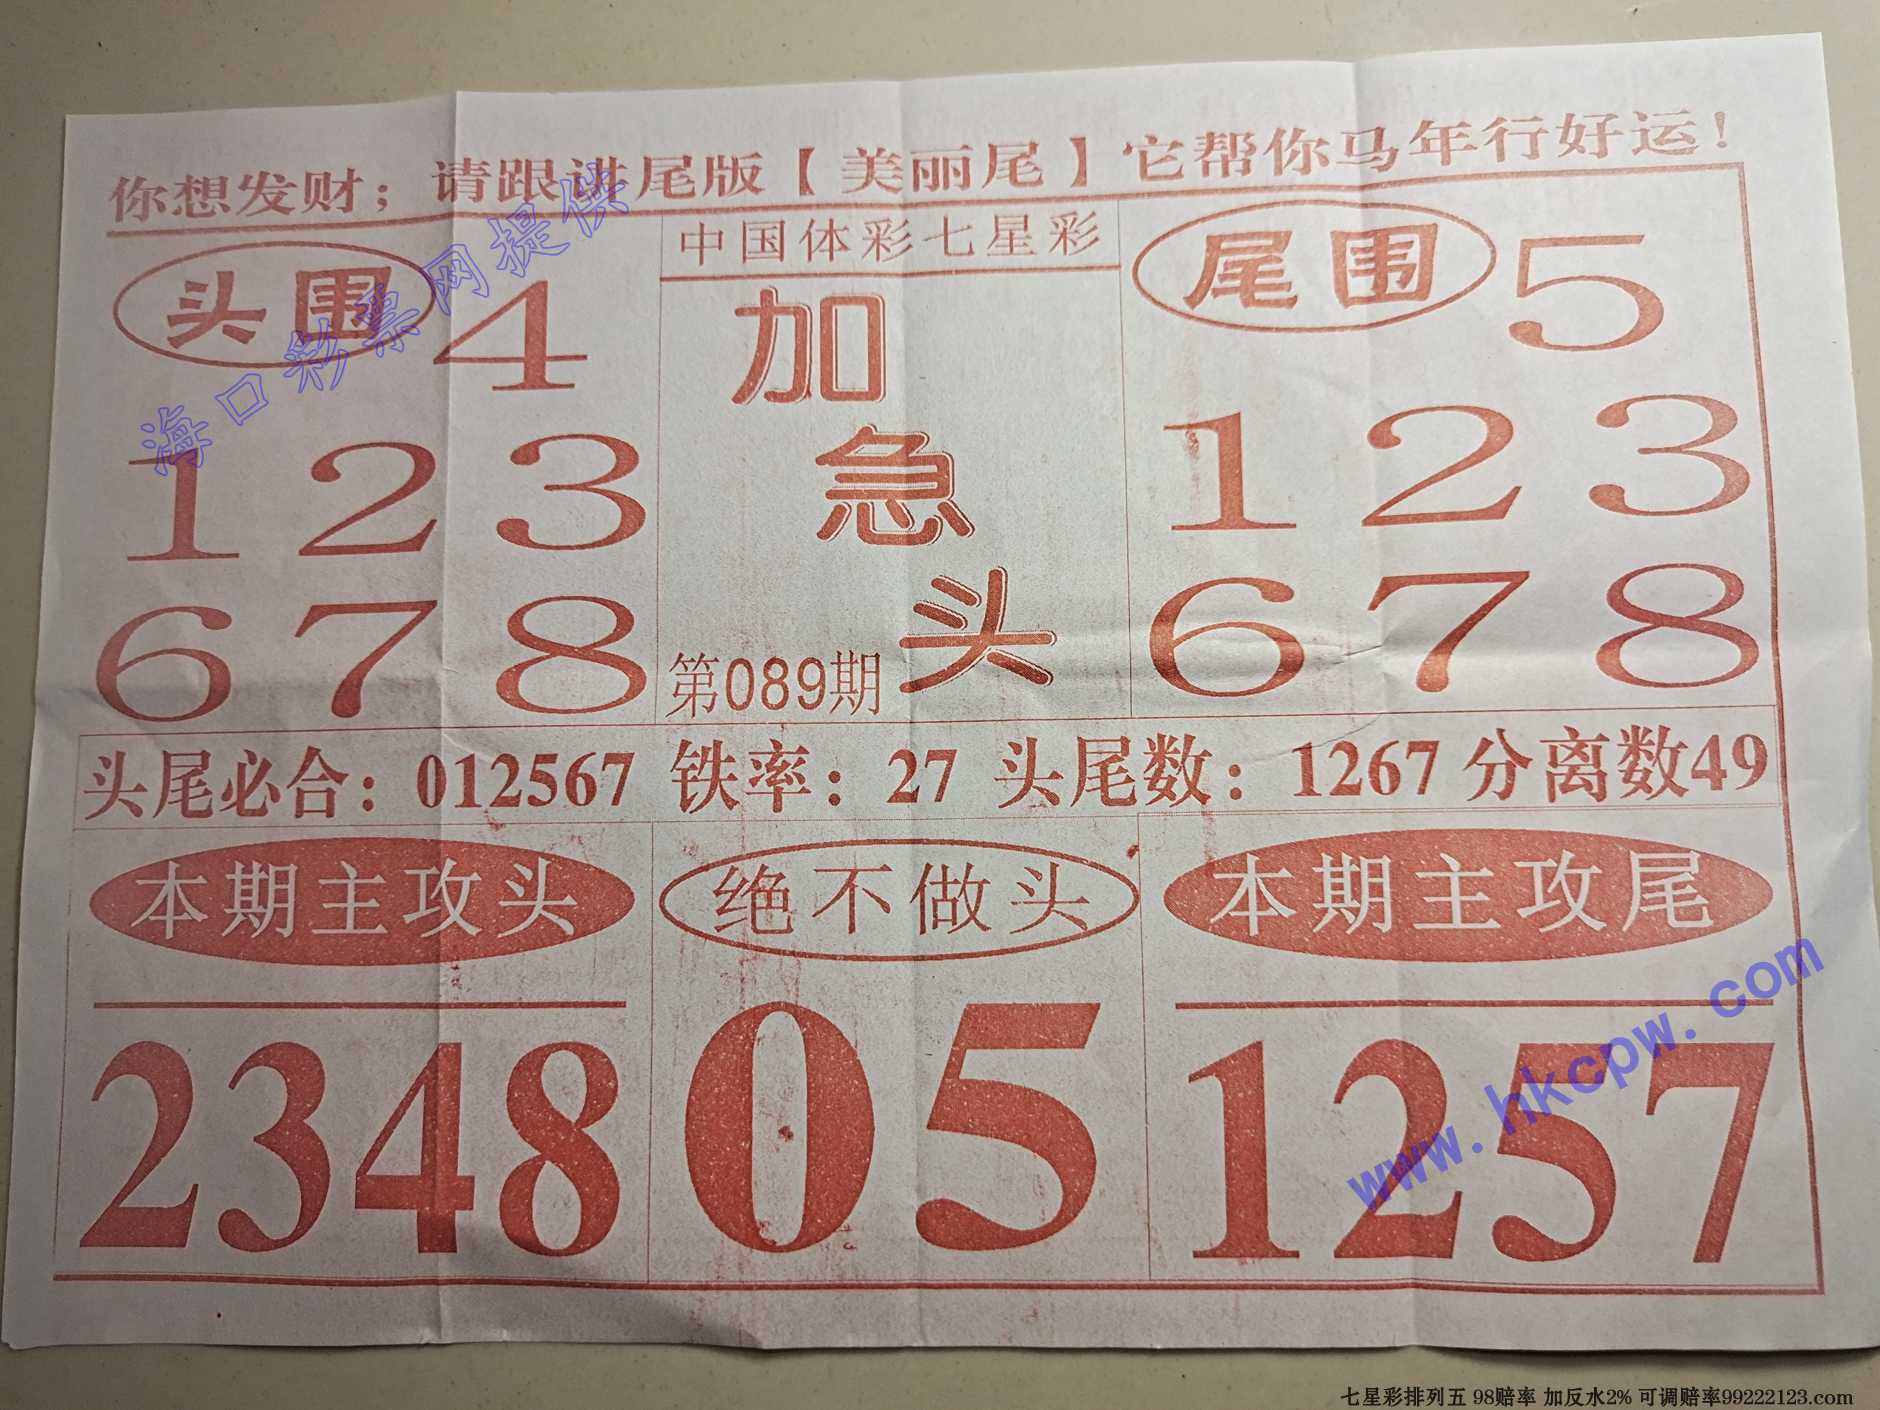 你想发财；请跟进尾版【美丽尾】它帮你马年行好运！
海口彩票网提供
头围 4
1 2 3
6 7 8
中国体彩七星彩
加
急
头
第089期
尾围 5
1 2 3
6 7 8
头尾必合：012567 铁率：27 头尾数：1267 分离数49
本期主攻头
2348
绝不做头
05
本期主攻尾
1257
www.hkcpw.com
七星彩排列五 98赔率 加反水2% 可调赔率99222123.com